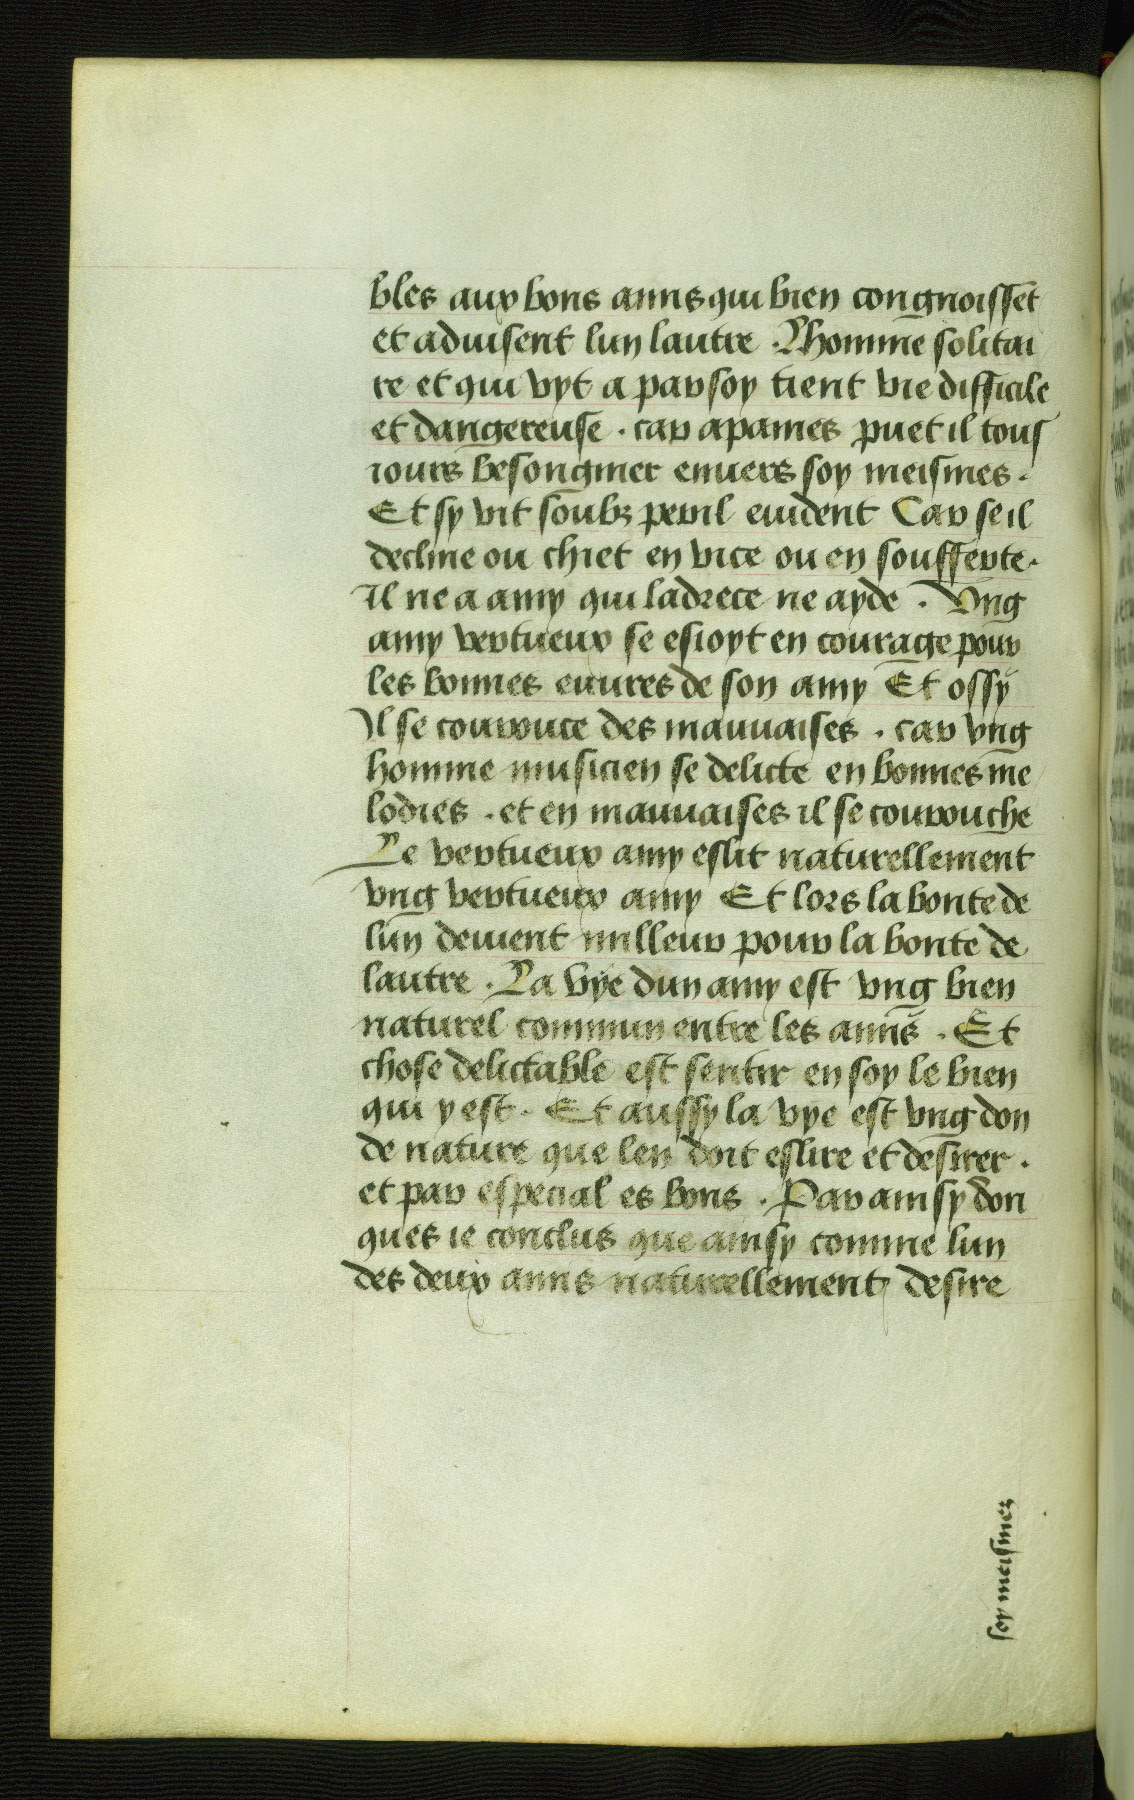 bles aux bons amis qui bien congnoissēt
et aduisent lun lautre . Lhomme solitai
re et qui vyt a par soy tient vie difficile
et dangereuse . car apaines puet il tous
iours besongnier enuers soy meismes .
Et sy vit soubz peril euident Car se il
decline ou chiet en vice ou en soufferte .
Il ne a amy qui ladrece ne ayde . Vng
amy vertueux se esioyt en courage pour
les bonnes euures de son amy Et ossy
Il se courouce des mauuaises . car vng
homme musicien se delicte en bonnes me
lodies . et en mauuaises il se courouche
Le vertueux amy eslit naturellement
vng vertueux amy Et lors la bonte de
lun deuient milleur pour la bonte de
lautre . La vye dun amy est vng bien
naturel commun entre les amis . Et
chose delictable est sentir en soy le bien
qui y est . Et aussy la vye est vng don
de nature que len doit eslire et desirer .
et par especial es bons . Par ainsy don
ques ie conclus que ainsy comme lun
des deux amis naturellement desire
soy meismez